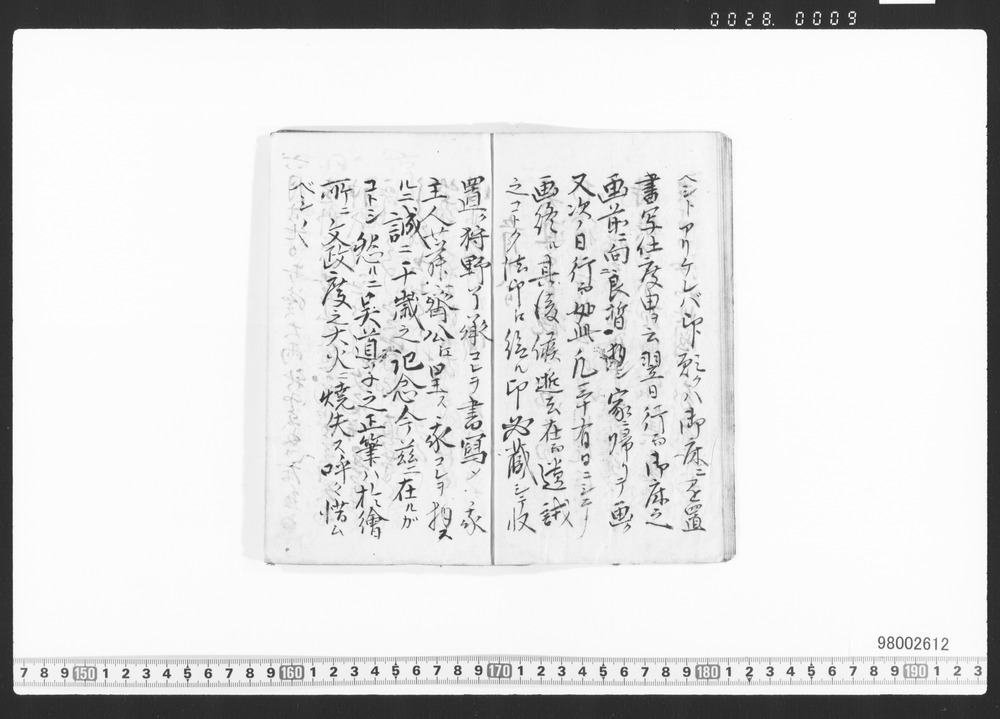 0028. 0009
ヘシトアリケレバ印願クハ御床ニ差置
書写仕度由ヲ云翌日行而御床之
画前ニ向良暫 家ニ帰リテ画ク
又次ノ日行而如此凡三十有日ニシテ
画終ル其後候逝去在而遺誡
之コトク法印ニ給ル印必蔵シテ収
置ク狩野 承コレヲ書写シ 家
主人 齋公ニ呈ス 家コレヲ
ルニ誠ニ千歳之記念今茲ニ在ルガ
コトシ然ルニ呉道子之正筆ハ於繪
所ニ文政度之大火ニ焼失ス呼々惜ム
ベシ
98002612
7 8 9 150 1 2 3 4 5 6 7 8 9 160 1 2 3 4 5 6 7 8 9 170 1 2 3 4 5 6 7 8 9 180 1 2 3 4 5 6 7 8 9 190 1 2 3